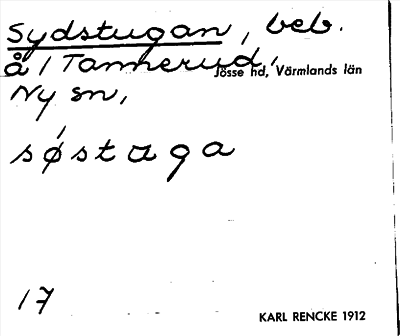 Sydstugan, beb.
å 1 Tannerud,
Jösse hd, Värmlands län
Ny sn,
søstaga
17
KARL RENCKE 1912